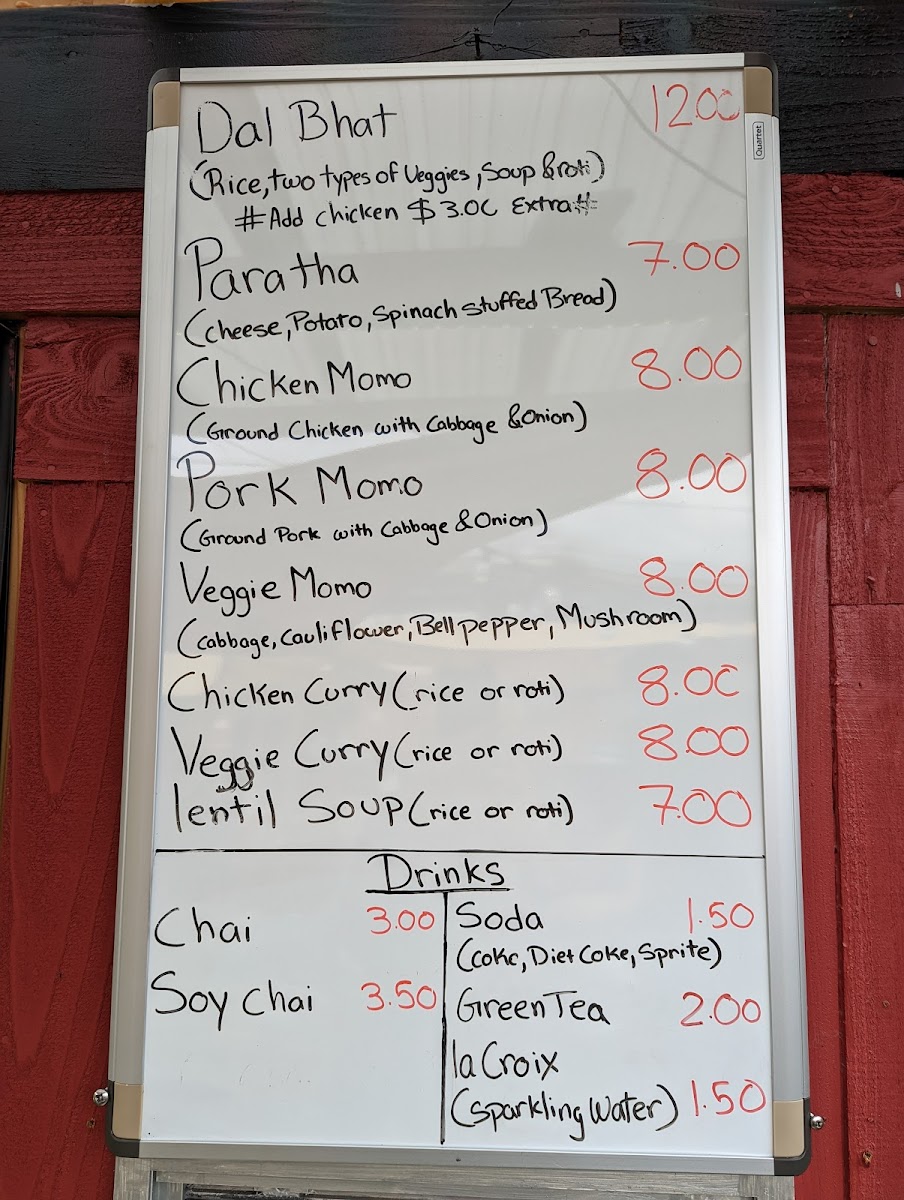 Dal Bhat 12.00
Quartet
(Rice, two types of Veggies, Soup & roti)
#Add chicken $3.00 Extra#
Paratha 7.00
(Cheese, Potato, Spinach stuffed Bread)
Chicken Momo 8.00
(Ground Chicken with Cabbage & Onion)
Pork Momo 8.00
(Ground Pork with Cabbage & Onion)
Veggie Momo 8.00
(Cabbage, Cauliflower, Bell pepper, Mushroom)
Chicken Curry (rice or roti) 8.00
Veggie Curry (rice or roti) 8.00
lentil Soup (rice or roti) 7.00
Drinks
Chai 3.00
Soy Chai 3.50
Soda 1.50
(Coke, Diet Coke, Sprite)
Green Tea 2.00
la Croix
(Sparkling Water) 1.50